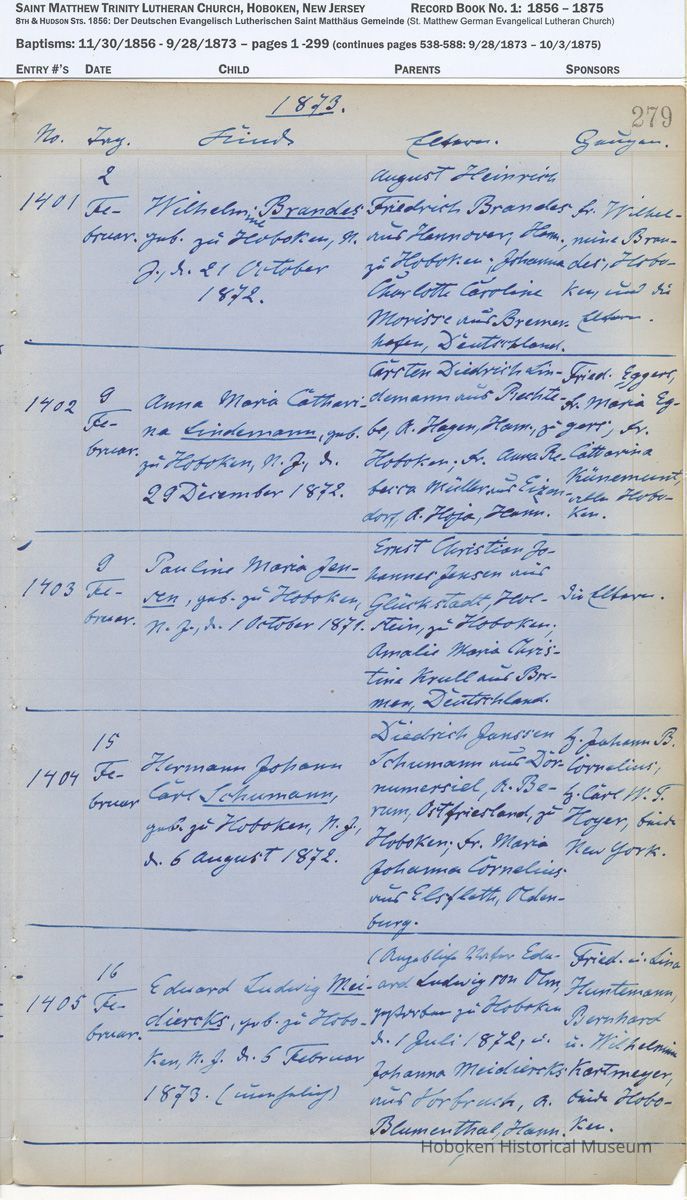 SAINT MATTHEW TRINITY LUTHERAN CHURCH, HOBOKEN, NEW JERSEY RECORD BOOK NO. 1: 1856 – 1875
8TH & HUDSON STS. 1856: Der Deutschen Evangelisch Lutherischen Saint Matthäus Gemeinde (St. Matthew German Evangelical Lutheran Church)
Baptisms: 11/30/1856 - 9/28/1873 – pages 1 -299 (continues pages 538-588: 9/28/1873 – 10/3/1875)
ENTRY #'S DATE CHILD PARENTS SPONSORS
1873.
279
No. Tag. Kind Eltern. Zeugen.
1401
2
Fe-
bruar.
Wilhelmine Brandes
geb. zu Hoboken, N.
J., d. 21 October
1872.
August Heinrich
Friedrich Brandes
aus Hannover, Hann.
zu Hoboken; Johanna
Charlotte Caroline
Morisse aus Bremer-
hafen, Deutschland.
Fr. Wilhel-
mine Bran-
des, Hobo-
ken, und die
Eltern.
1402
9
Fe-
bruar.
Anna Maria Cathari-
na Lindemann, geb.
zu Hoboken, N. J., d.
29 December 1872.
Carsten Diedrich Lin-
demann aus Rechte-
be, A. Hagen, Hann. zu
Hoboken; Fr. Anna Re-
becca Müller aus Eizen-
dorf, A. Hoja, Hann.
Fried. Eggers,
Fr. Maria Eg-
gers, Fr.
Catharina
Künemund,
alle Hobo-
ken.
1403
9
Fe-
bruar.
Pauline Maria Jen-
sen, geb. zu Hoboken,
N. J., d. 1 October 1871.
Ernst Christian Jo-
hannes Jensen aus
Glückstadt, Hol-
stein, zu Hoboken;
Amalie Maria Chris-
tine Krull aus Bre-
men, Deutschland.
Die Eltern.
1404
15
Fe-
bruar
Hermann Johann
Carl Schumann,
geb. zu Hoboken, N. J.,
d. 6 August 1872.
Diedrich Janssen
Schumann aus Dor-
numersiel, A. Be-
rum, Ostfriesland, zu
Hoboken; Fr. Maria
Johanna Cornelius
aus Elsfleth, Olden-
burg.
H. Johann B.
Cornelius,
H. Carl W. F.
Hoyer, beide
New York.
1405
16
Fe-
bruar.
Eduard Ludwig Mei-
diercks, geb. zu Hobo-
ken, N. J. d. 5 Februar
1873. (unehelich)
(Angeblicher Vater Edu-
ard Ludwig von Olm,
gestorben zu Hoboken
d. 1 Juli 1872, u.
Johanna Meidiercks
aus Vorbruch, A.
Blumenthal, Hann.
Fried. u. Lina
Huntemann,
Bernhard
u. Wilhelmine
Kortmeyer,
beide Hobo-
ken.
Hoboken Historical Museum